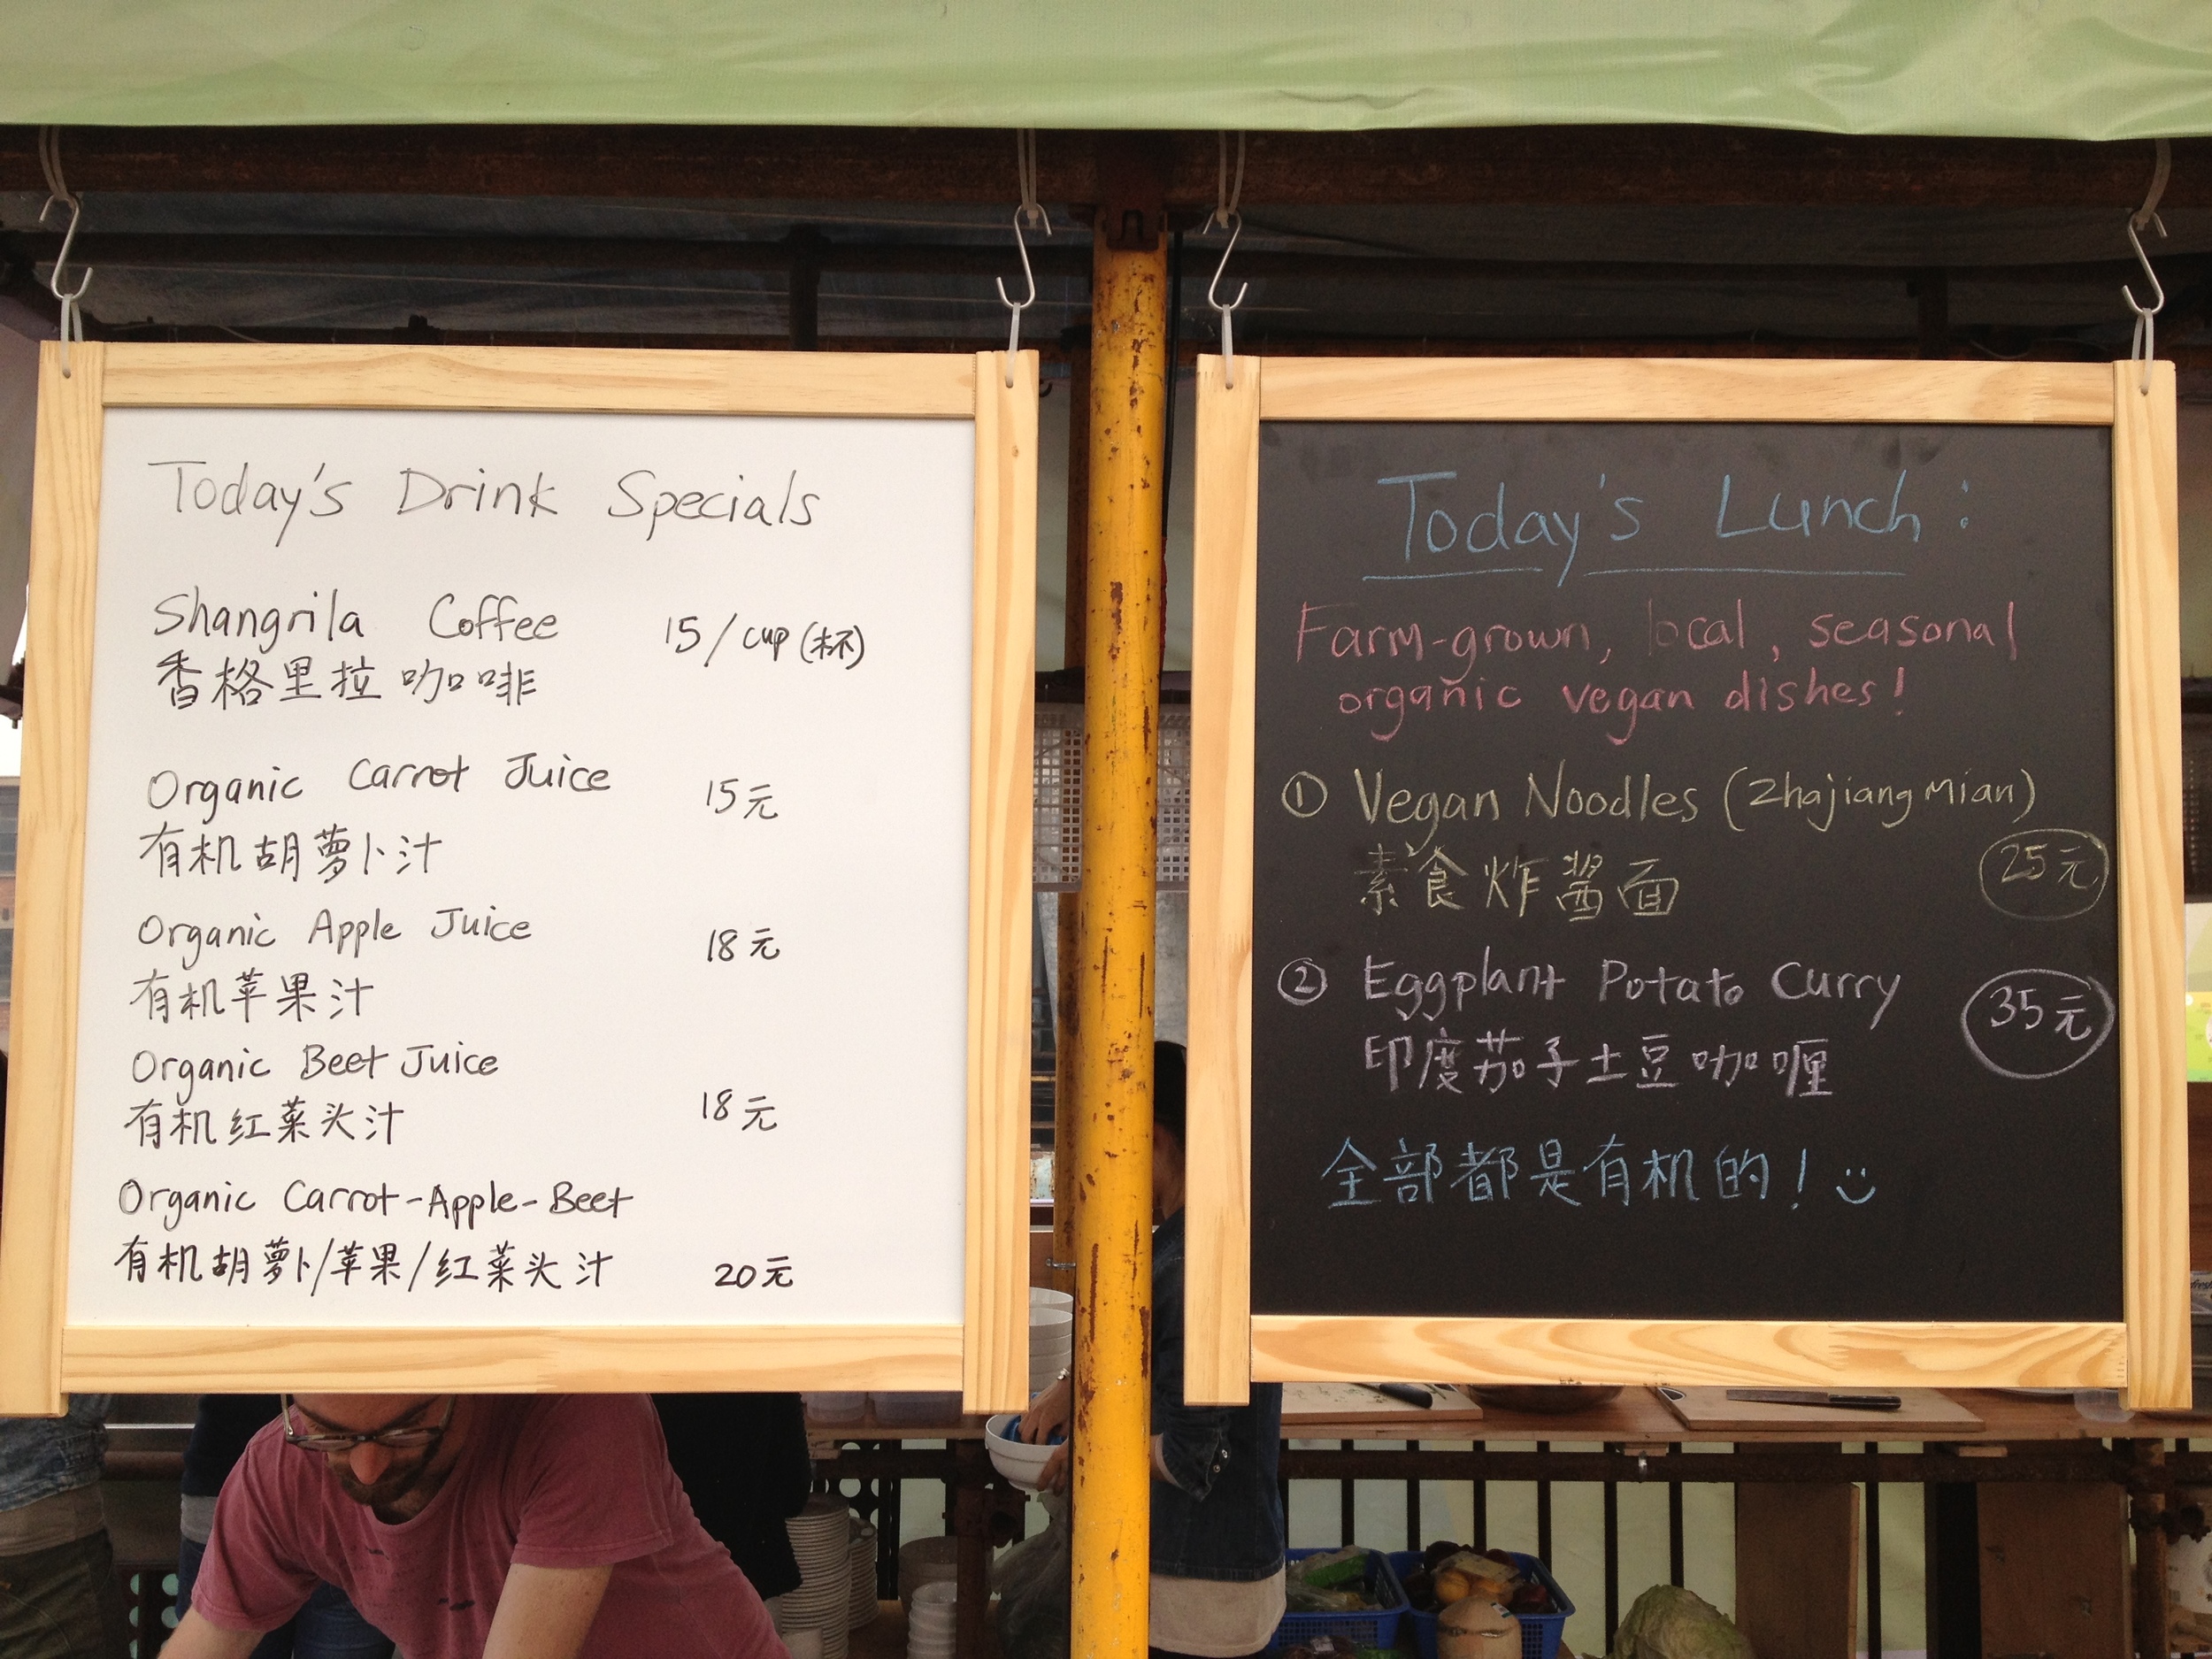 Today's Drink Specials
Shangrila Coffee 15/cup (杯)
香格里拉 咖啡
Organic Carrot Juice 15元
有机胡萝卜汁
Organic Apple Juice 18元
有机苹果汁
Organic Beet Juice
有机红菜头汁 18元
Organic Carrot-Apple-Beet
有机胡萝卜/苹果/红菜头汁 20元
Today's Lunch:
Farm-grown, local, seasonal
organic vegan dishes!
① Vegan Noodles (Zhajiang mian)
素食炸酱面 25元
② Eggplant Potato Curry 35元
印度茄子土豆咖喱
全部都是有机的!